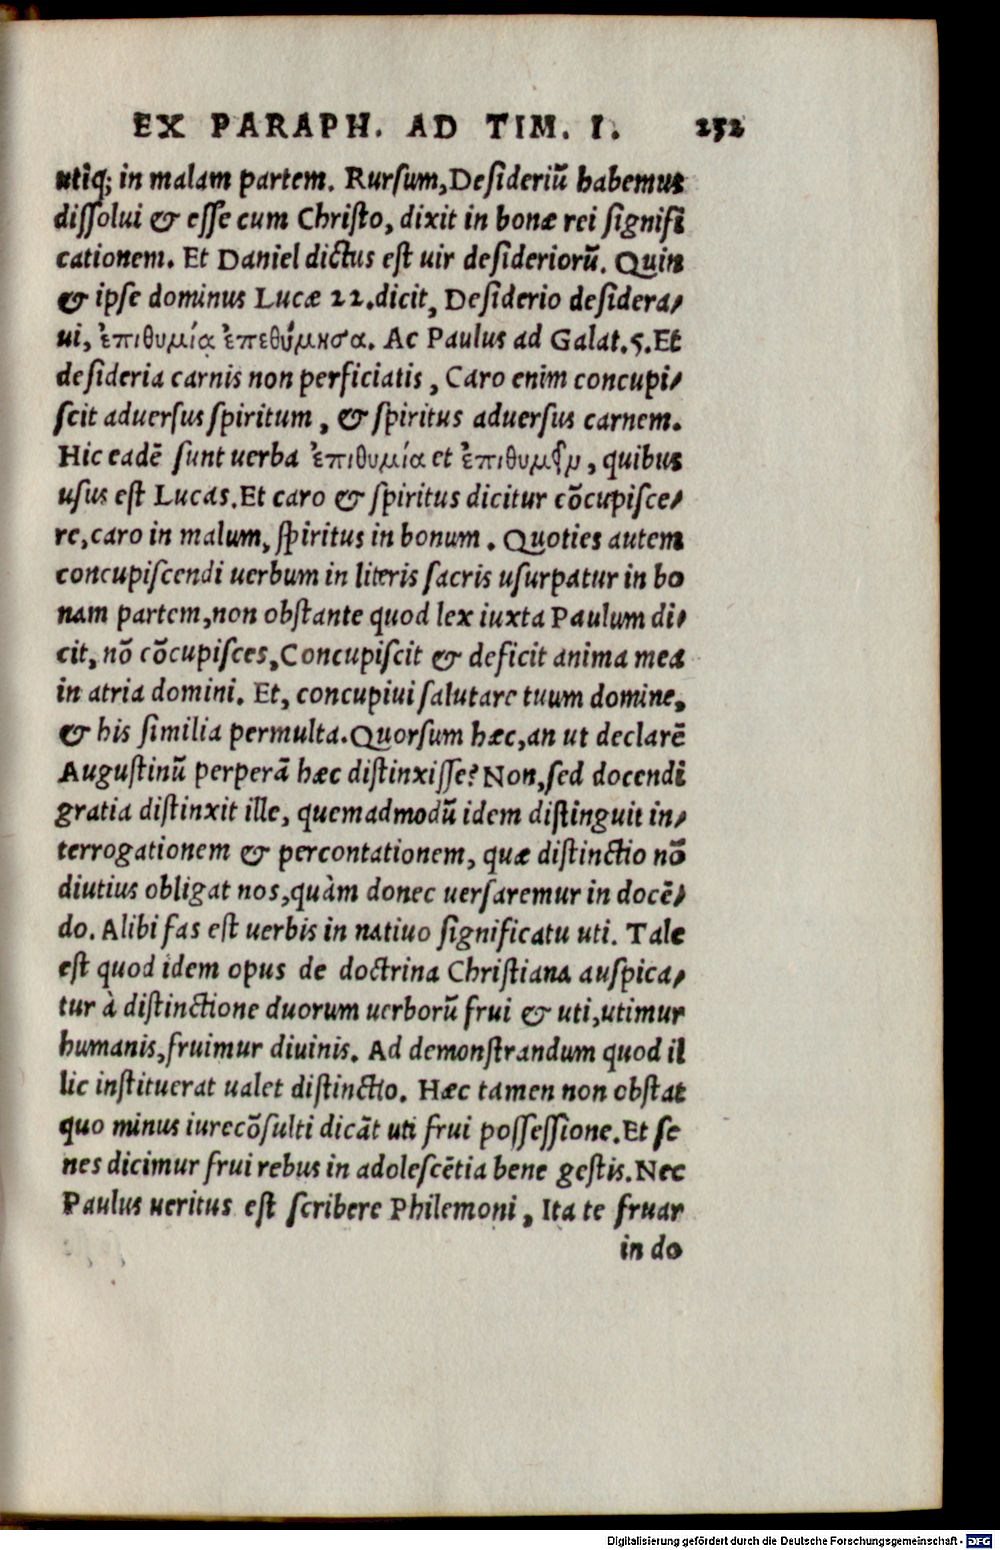 EX PARAPH. AD TIM. I. 252
utiq; in malam partem. Rursum, Desideriũ habemus
dissolui & esse cum Christo, dixit in bonæ rei signifi
cationem. Et Daniel dictus est uir desideriorũ. Quin
& ipse dominus Lucæ 22. dicit, Desiderio desidera-
ui, ἐπιθυμίᾳ ἐπεθύμησα. Ac Paulus ad Galat. 5. Et
desideria carnis non perficiatis, Caro enim concupi-
scit aduersus spiritum, & spiritus aduersus carnem.
Hic eadẽ sunt uerba ἐπιθυμία et ἐπιθυμεῖν, quibus
usus est Lucas. Et caro & spiritus dicitur cõcupisce-
re, caro in malum, spiritus in bonum. Quoties autem
concupiscendi uerbum in literis sacris usurpatur in bo
nam partem, non obstante quod lex iuxta Paulum di-
cit, nõ cõcupisces, Concupiscit & deficit anima mea
in atria domini. Et, concupiui salutare tuum domine,
& his similia permulta. Quorsum hæc, an ut declarẽ
Augustinũ perperã hæc distinxisse? Non, sed docendi
gratia distinxit ille, quemadmodũ idem distinguit in-
terrogationem & percontationem, quæ distinctio nõ
diutius obligat nos, quàm donec uersaremur in docẽ-
do. Alibi fas est uerbis in natiuo significatu uti. Tale
est quod idem opus de doctrina Christiana auspica-
tur à distinctione duorum uerborũ frui & uti, utimur
humanis, fruimur diuinis. Ad demonstrandum quod il
lic instituerat ualet distinctio. Hæc tamen non obstat
quo minus iurecõsulti dicãt uti frui possessione. Et se
nes dicimur frui rebus in adolescẽtia bene gestis. Nec
Paulus ueritus est scribere Philemoni, Ita te fruar
in do
Digitalisierung gefördert durch die Deutsche Forschungsgemeinschaft - DFG